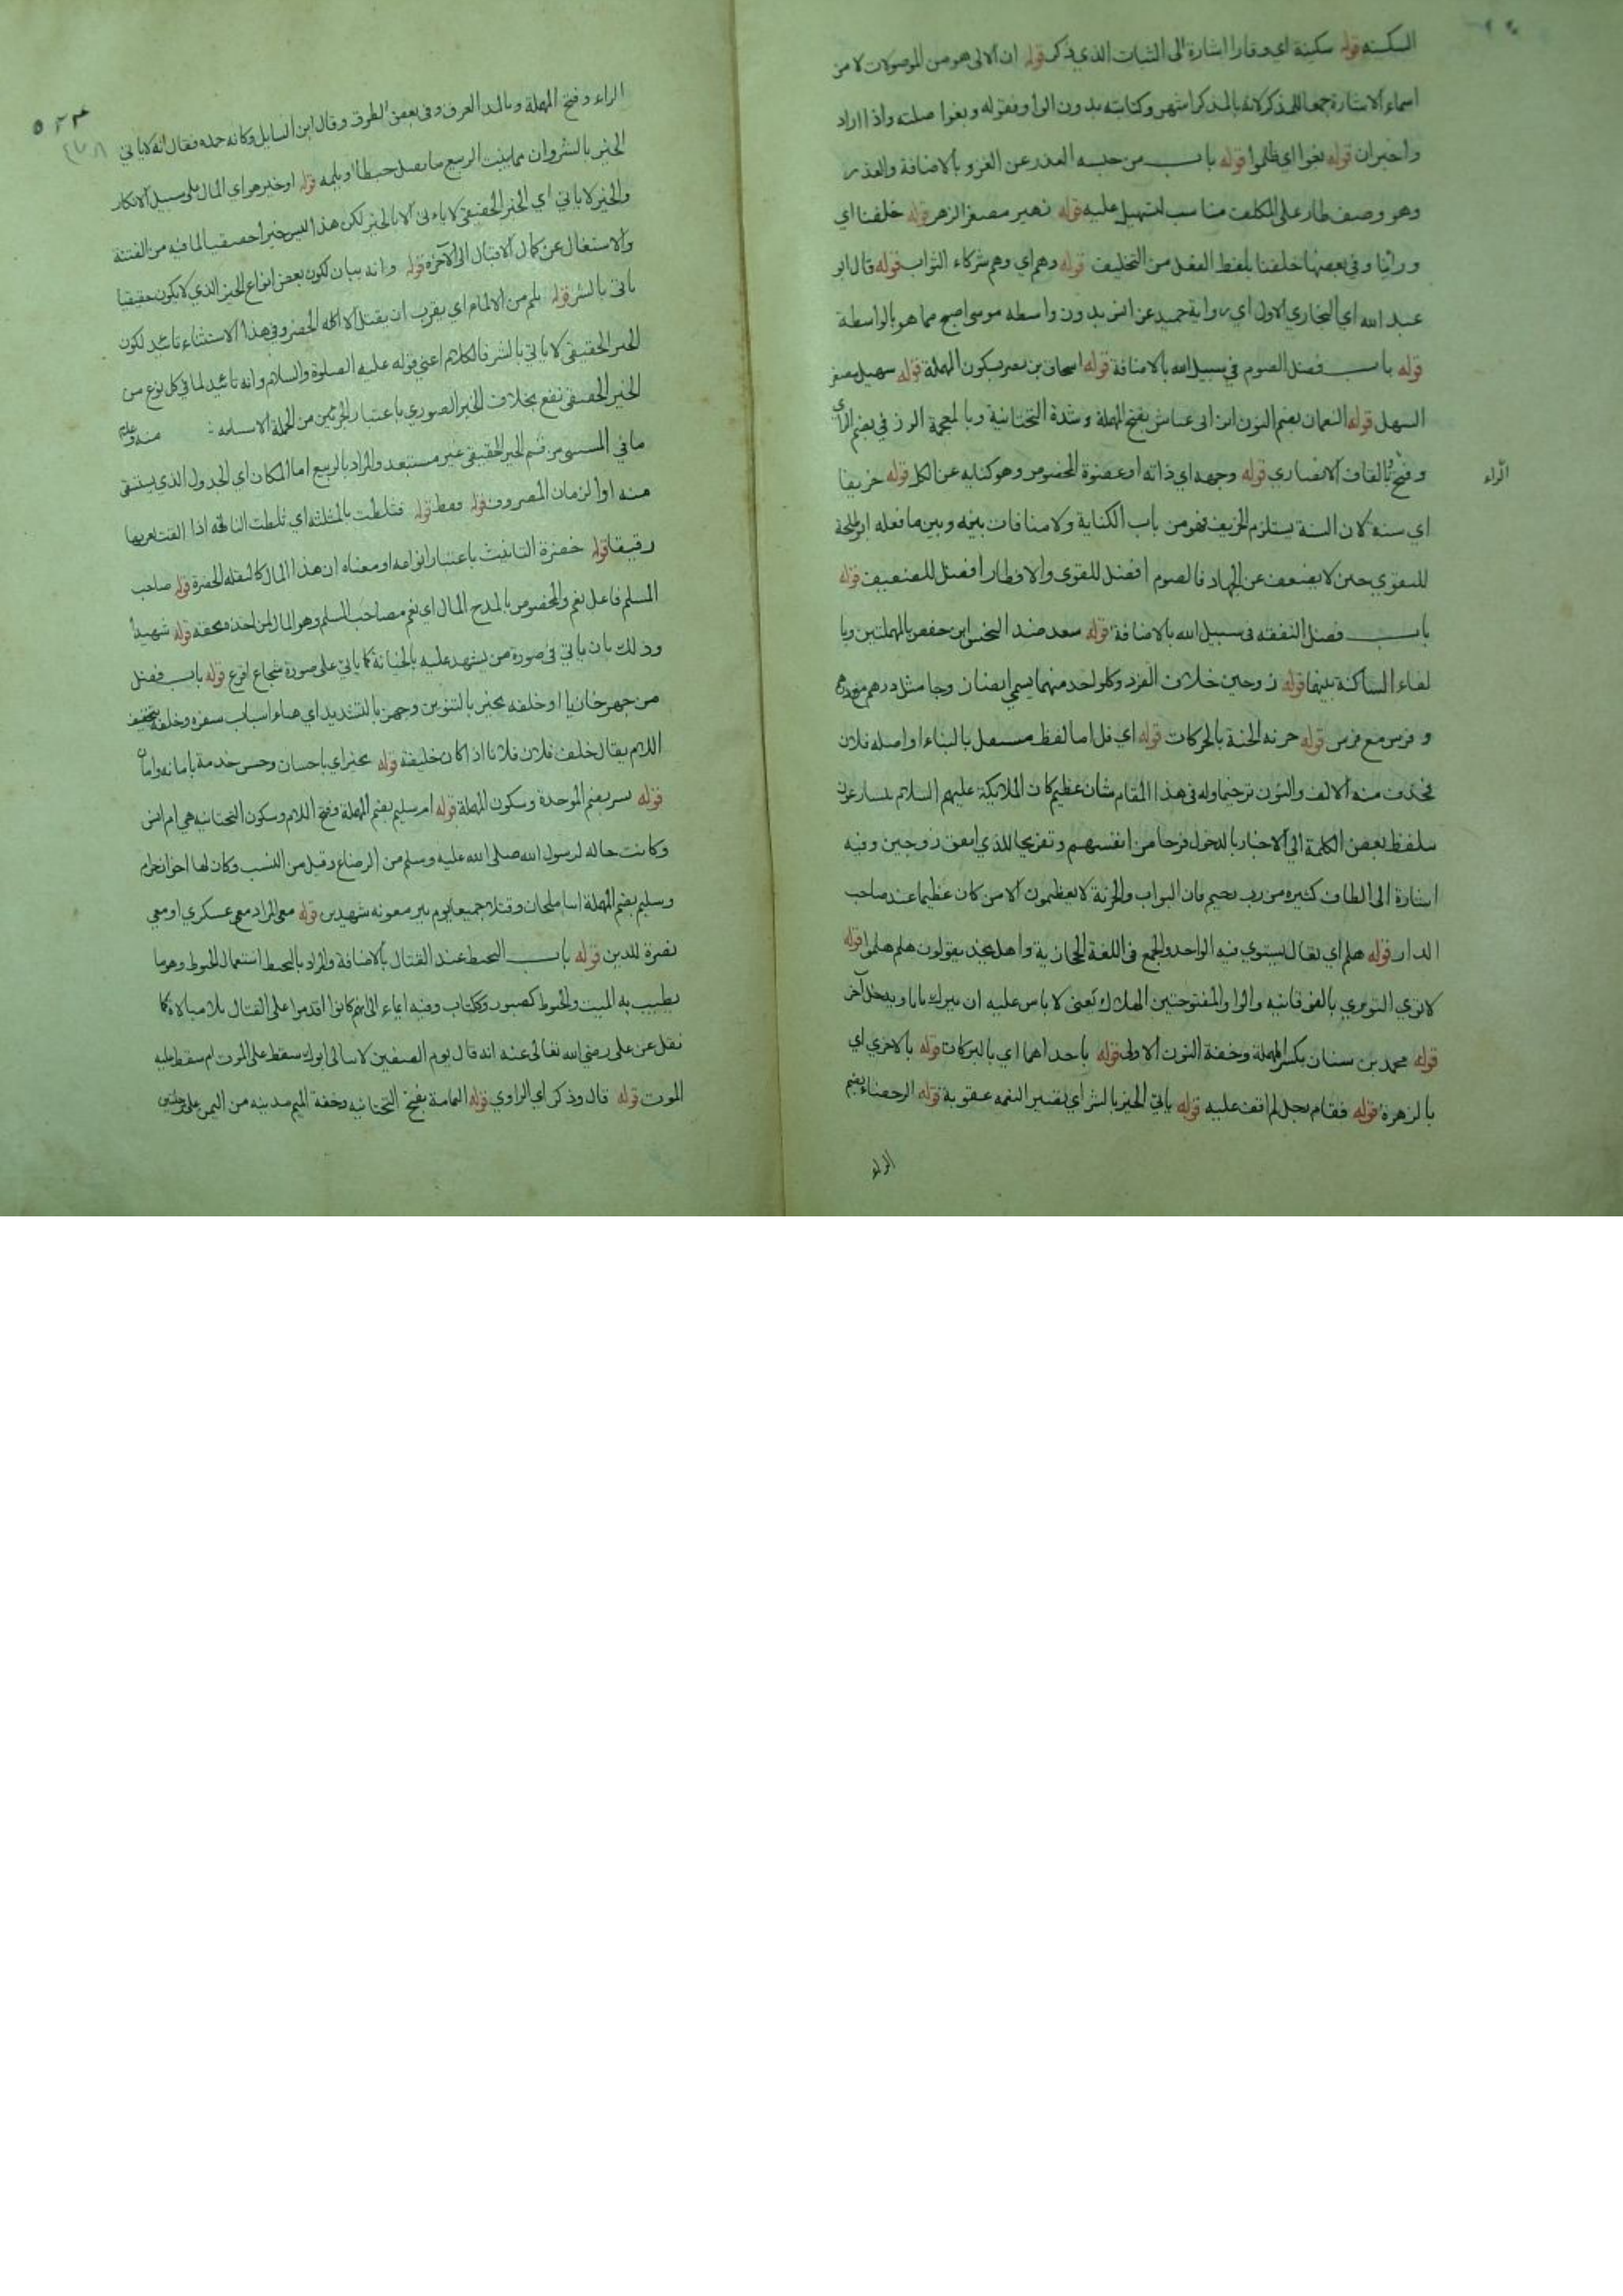 السكينه قوله سكينة اي وقارا اشارة الى الثبات الذي ذكر قوله ان الالى هو من الموصولات لا من
اسماء الاشارة جمعا للمذكر لانه بالمذكر اشهر وكتابته بدون الواو وقوله وبغوا صلته واذا اراد
واخبر ان قوله بغوا اي ظلموا قوله باب من حبسه العذر عن الغزو بالاضافة والعذر
وهو وصف طار على المكلف مناسب لتسهيل عليه قوله زهير مصغر الزهر قوله خلفنا اي
وراينا وفي بعضها خلفنا بلفظ الفعل من التخليف قوله وهم اي وهم شركاء الثواب قوله قال ابو
عبد الله اي البخاري الاول اي رواية حميد عن انس بدون واسطه موسى اصح مما هو بالواسطة
قوله باب فضل الصوم في سبيل الله بالاضافة قوله اسحاق بن نصر بسكون المهملة قوله سهيل مصغر
السهل قوله النعمان بضم النون ابن ابي عياش بفتح المهملة وشدة التحتانية وبالمعجمة الزرقي بضم الزاي
وفتح الراء وبالقاف الانصاري قوله وجهه اي ذاته او عضوه المخصوص وهو كنايه عن الكل قوله خريفا
اي سنة لان السنة يستلزم الخريف فهو من باب الكناية ولا منافات بينه وبين ما فعله ابو طلحة
للتقوي حين لا يضعف عن الجهاد فالصوم افضل للقوى والافطار افضل للضعيف قوله
باب فضل النفقه في سبيل الله بالاضافة قوله سعد ضد النحس ابن حفص بالمهملتين وبا
لفاء الساكنة بينهما قوله زوجين خلاف الفرد وكل واحد منهما يسمى ايضا زوجا مثل درهم مع درهم
و فرس مع فرس قوله خزنه الجنة بالحركات قوله اي فل اما لفظ مستعمل بالبناء او اصله فلان
فحذف منه الالف والنون ترخيما وله في هذا المقام شان عظيم كان الملائيكة عليهم السلام يسارعون
بلفظ بعض الكلمة الى الاخبار بالدخول فرحا من انفسهم وتفريحا للذي انفق زوجين وفيه
اشارة الى الطاف كثيره من رب رحيم فان البواب والخزنة لا يعظمون الا من كان عظيما عند صاحب
الدار قوله هلم اي تعال يستوي فيه الواحد والجمع في اللغة الحجازية واهل نجد يقولون هلم هلموا قوله
لا توى التوى بالفوقانيه والواو المفتوحتين الهلاك يعنى لا باس عليه ان يترك بابا ويدخل آخر
قوله محمد بن سنان بكسر المهملة وخفة النون الاولى قوله باحداهما اي بالبركات قوله بالاخرى اي
بالزهرة قوله فقام رجل لم اقف عليه قوله ياتي الخير بالشر اي تصير النعمه عقوبة قوله الرحضاء بضم
الراء
الراء وفتح المهملة وبالمد العرق وفي بعض الطرق وقال اين السايل وكانه حمده فقال انه لا ياتي
الخير بالشر وان مما ينبت الربيع ما يقتل حبطا او يلم قوله اوخير هو اي المال على سبيل الانكار
والخير لا ياتي اي الخير الحقيقي لا ياتى الا بالخير لكن هذا ليس خيرا حقيقيا لما فيه من الفتنة
والاشتغال عن كمال الاقبال الى الآخرة قوله وانه بيان لكون بعض انواع الخير الذي لا يكون حقيقيا
ياتى بالشر قوله يلم من الالمام اي يقرب ان يقتل الا اكله الخضر وفي هذا الاستثناء تائيد لكون
الخير الحقيقي لا ياتي بالشر فالكلام اعني قوله عليه الصلوة والسلام وانه تائيد لما في كل نوع من
الخير الحقيقي نفع بخلاف الخير الصوري باعتبار الجزئين من الجملة الاسميه : منه
ما في المستثنى من قسم الخير الحقيقي غير مستبعد والمراد بالربيع اما المكان اي الجدول الذي يستقى
منه او الزمان المعروف قوله فقط قوله فثلطت بالمثلثة اي ثلطت الناقة اذا القت بعرها
رقيقا قوله خضرة التانيث باعتبار انواعه او معناه ان هذا المال كالبقله الخضرة قوله صاحب
المسلم فاعل نعم والمخصوص بالمدح المال اي نعم صاحب المسلم وهو المال لمن اخذه بحقه قوله شهيدا
وذلك بان ياتي في صورة من يشهد عليه بالخيانة كما ياتي على صورة شجاع اقرع قوله باب فضل
من جهز غازيا او خلفه بخير بالتنوين وجهز بالتشديد اي هياء اسباب سفره وخلفه بتخفيف
اللام يقال خلف فلان فلانا اذا كان خليفة قوله بخير اي باحسان وحسن خدمة بامانه واما
قوله بسر بضم الموحدة وسكون المهملة قوله ام سليم بضم المهملة وفتح اللام وسكون التحتانيه هي ام انس
وكانت خاله لرسول الله صلى الله عليه وسلم من الرضاع وقيل من النسب وكان لها اخوان حرام
وسليم بضم المهملة ابنا ملحان وقتلا جميعا يوم بير معونه شهيدين قوله معي المراد مع عسكري او معي
نصرة للدين قوله باب التحنط عند القتال بالاضافة والمراد بالتحنط استعمال الحنوط وهو ما
يطيب به الميت والحنوط كصبور وككتاب وفيه ايماء الى انهم كانوا اقدموا على القتال بلا مبالاة كما
نقل عن على رضى الله تعالى عنه انه قال يوم الصفين لا يبالى ابوك سقط على الموت ام سقط عليه
الموت قوله قال وذكر اي الراوي قوله اليمامة بفتح التحتانيه وخفة الميم مدينه من اليمن على مرحلتين